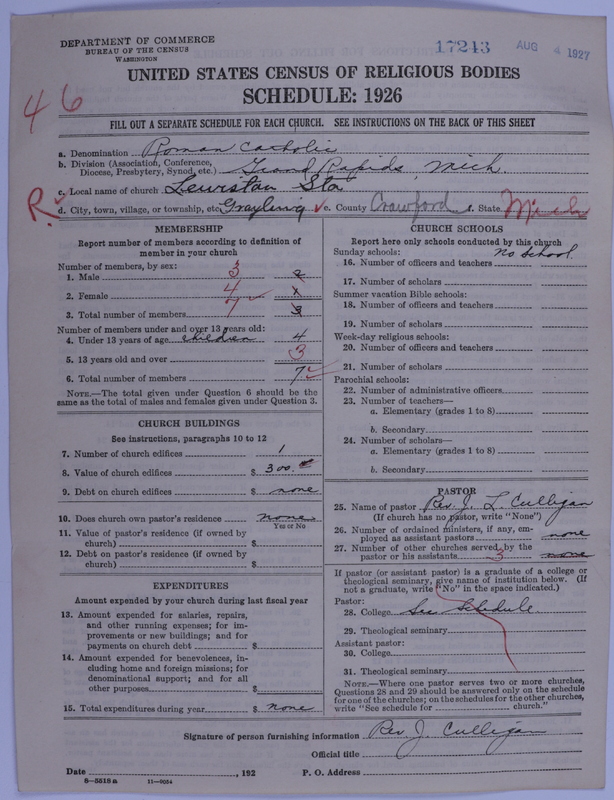 DEPARTMENT OF COMMERCE
BUREAU OF THE CENSUS
WASHINGTON
17243 AUG 4 1927
UNITED STATES CENSUS OF RELIGIOUS BODIES
SCHEDULE: 1926
46
FILL OUT A SEPARATE SCHEDULE FOR EACH CHURCH. SEE INSTRUCTIONS ON THE BACK OF THIS SHEET
a. Denomination Roman Catholic
b. Division (Association, Conference, Diocese, Presbytery, Synod, etc.) Grand Rapids, Mich.
c. Local name of church Lewiston Sta
R. d. City, town, village, or township, etc. Grayling e. County Crawford f. State Mich
MEMBERSHIP
Report number of members according to definition of
member in your church
Number of members, by sex:
1. Male 3
2. Female 4
3. Total number of members 7 3
Number of members under and over 13 years old:
4. Under 13 years of age children 4
5. 13 years old and over 3
6. Total number of members 7
NOTE.—The total given under Question 6 should be
the same as the total of males and females given under Question 3.
CHURCH BUILDINGS
See instructions, paragraphs 10 to 12
7. Number of church edifices 1
8. Value of church edifices $ 300.
9. Debt on church edifices $ none
10. Does church own pastor's residence none
Yes or No
11. Value of pastor's residence (if owned by
church) $
12. Debt on pastor's residence (if owned by
church) $
EXPENDITURES
Amount expended by your church during last fiscal year
13. Amount expended for salaries, repairs,
and other running expenses; for im-
provements or new buildings; and for
payments on church debt $
14. Amount expended for benevolences, in-
cluding home and foreign missions; for
denominational support; and for all
other purposes $
15. Total expenditures during year $ none
CHURCH SCHOOLS
Report here only schools conducted by this church
Sunday schools: No School
16. Number of officers and teachers
17. Number of scholars
Summer vacation Bible schools:
18. Number of officers and teachers
19. Number of scholars
Week-day religious schools:
20. Number of officers and teachers
21. Number of scholars
Parochial schools:
22. Number of administrative officers
23. Number of teachers—
a. Elementary (grades 1 to 8)
b. Secondary
24. Number of scholars—
a. Elementary (grades 1 to 8)
b. Secondary
PASTOR
25. Name of pastor Rev. J. L. Culligan
(If church has no pastor, write "None")
26. Number of ordained ministers, if any, em-
ployed as assistant pastors none
27. Number of other churches served by the
pastor or his assistants 3 none
If pastor (or assistant pastor) is a graduate of a college or
theological seminary, give name of institution below. (If
not a graduate, write "No" in the space indicated.)
Pastor:
28. College See Schedule
29. Theological seminary
Assistant pastor:
30. College
31. Theological seminary
NOTE.—Where one pastor serves two or more churches,
Questions 28 and 29 should be answered only on the schedule
for one of the churches; on the schedules for the other churches,
write "See schedule for ______ church."
Signature of person furnishing information Rev. J. Culligan
Official title
Date , 192 P. O. Address
8-5518a 11-9054